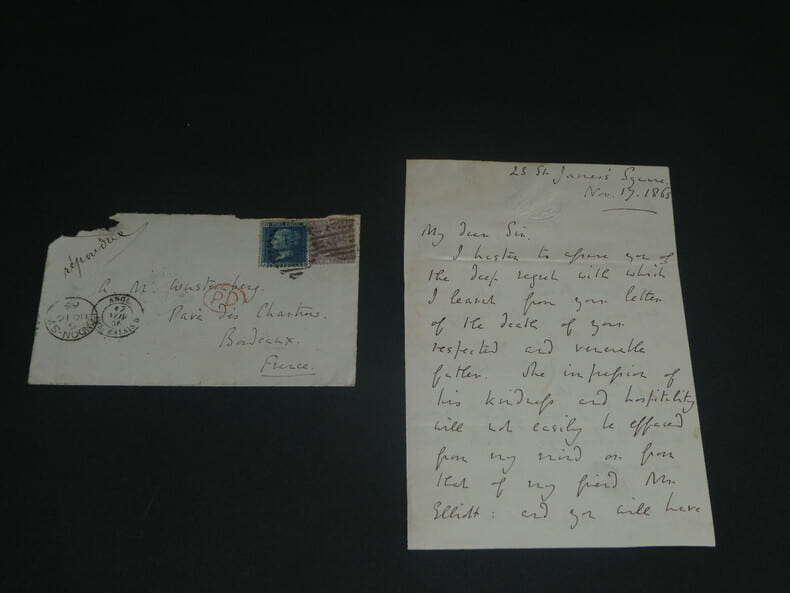 répondue
A M. Wustenberg.
Pavé des Chartrons.
Bordeaux.
France.
PD
LONDON-S
ANGL.
17
CALAIS
23 St. James's Square
Nov. 17. 1865
My dear Sir.
I hasten to assure you of
the deep regret with which
I learnt from your letter
of the death of your
respected and venerable
father. The impression of
his kindness and hospitality
will not easily be effaced
from my mind or from
that of my friend Mr.
Elliott: and you will have